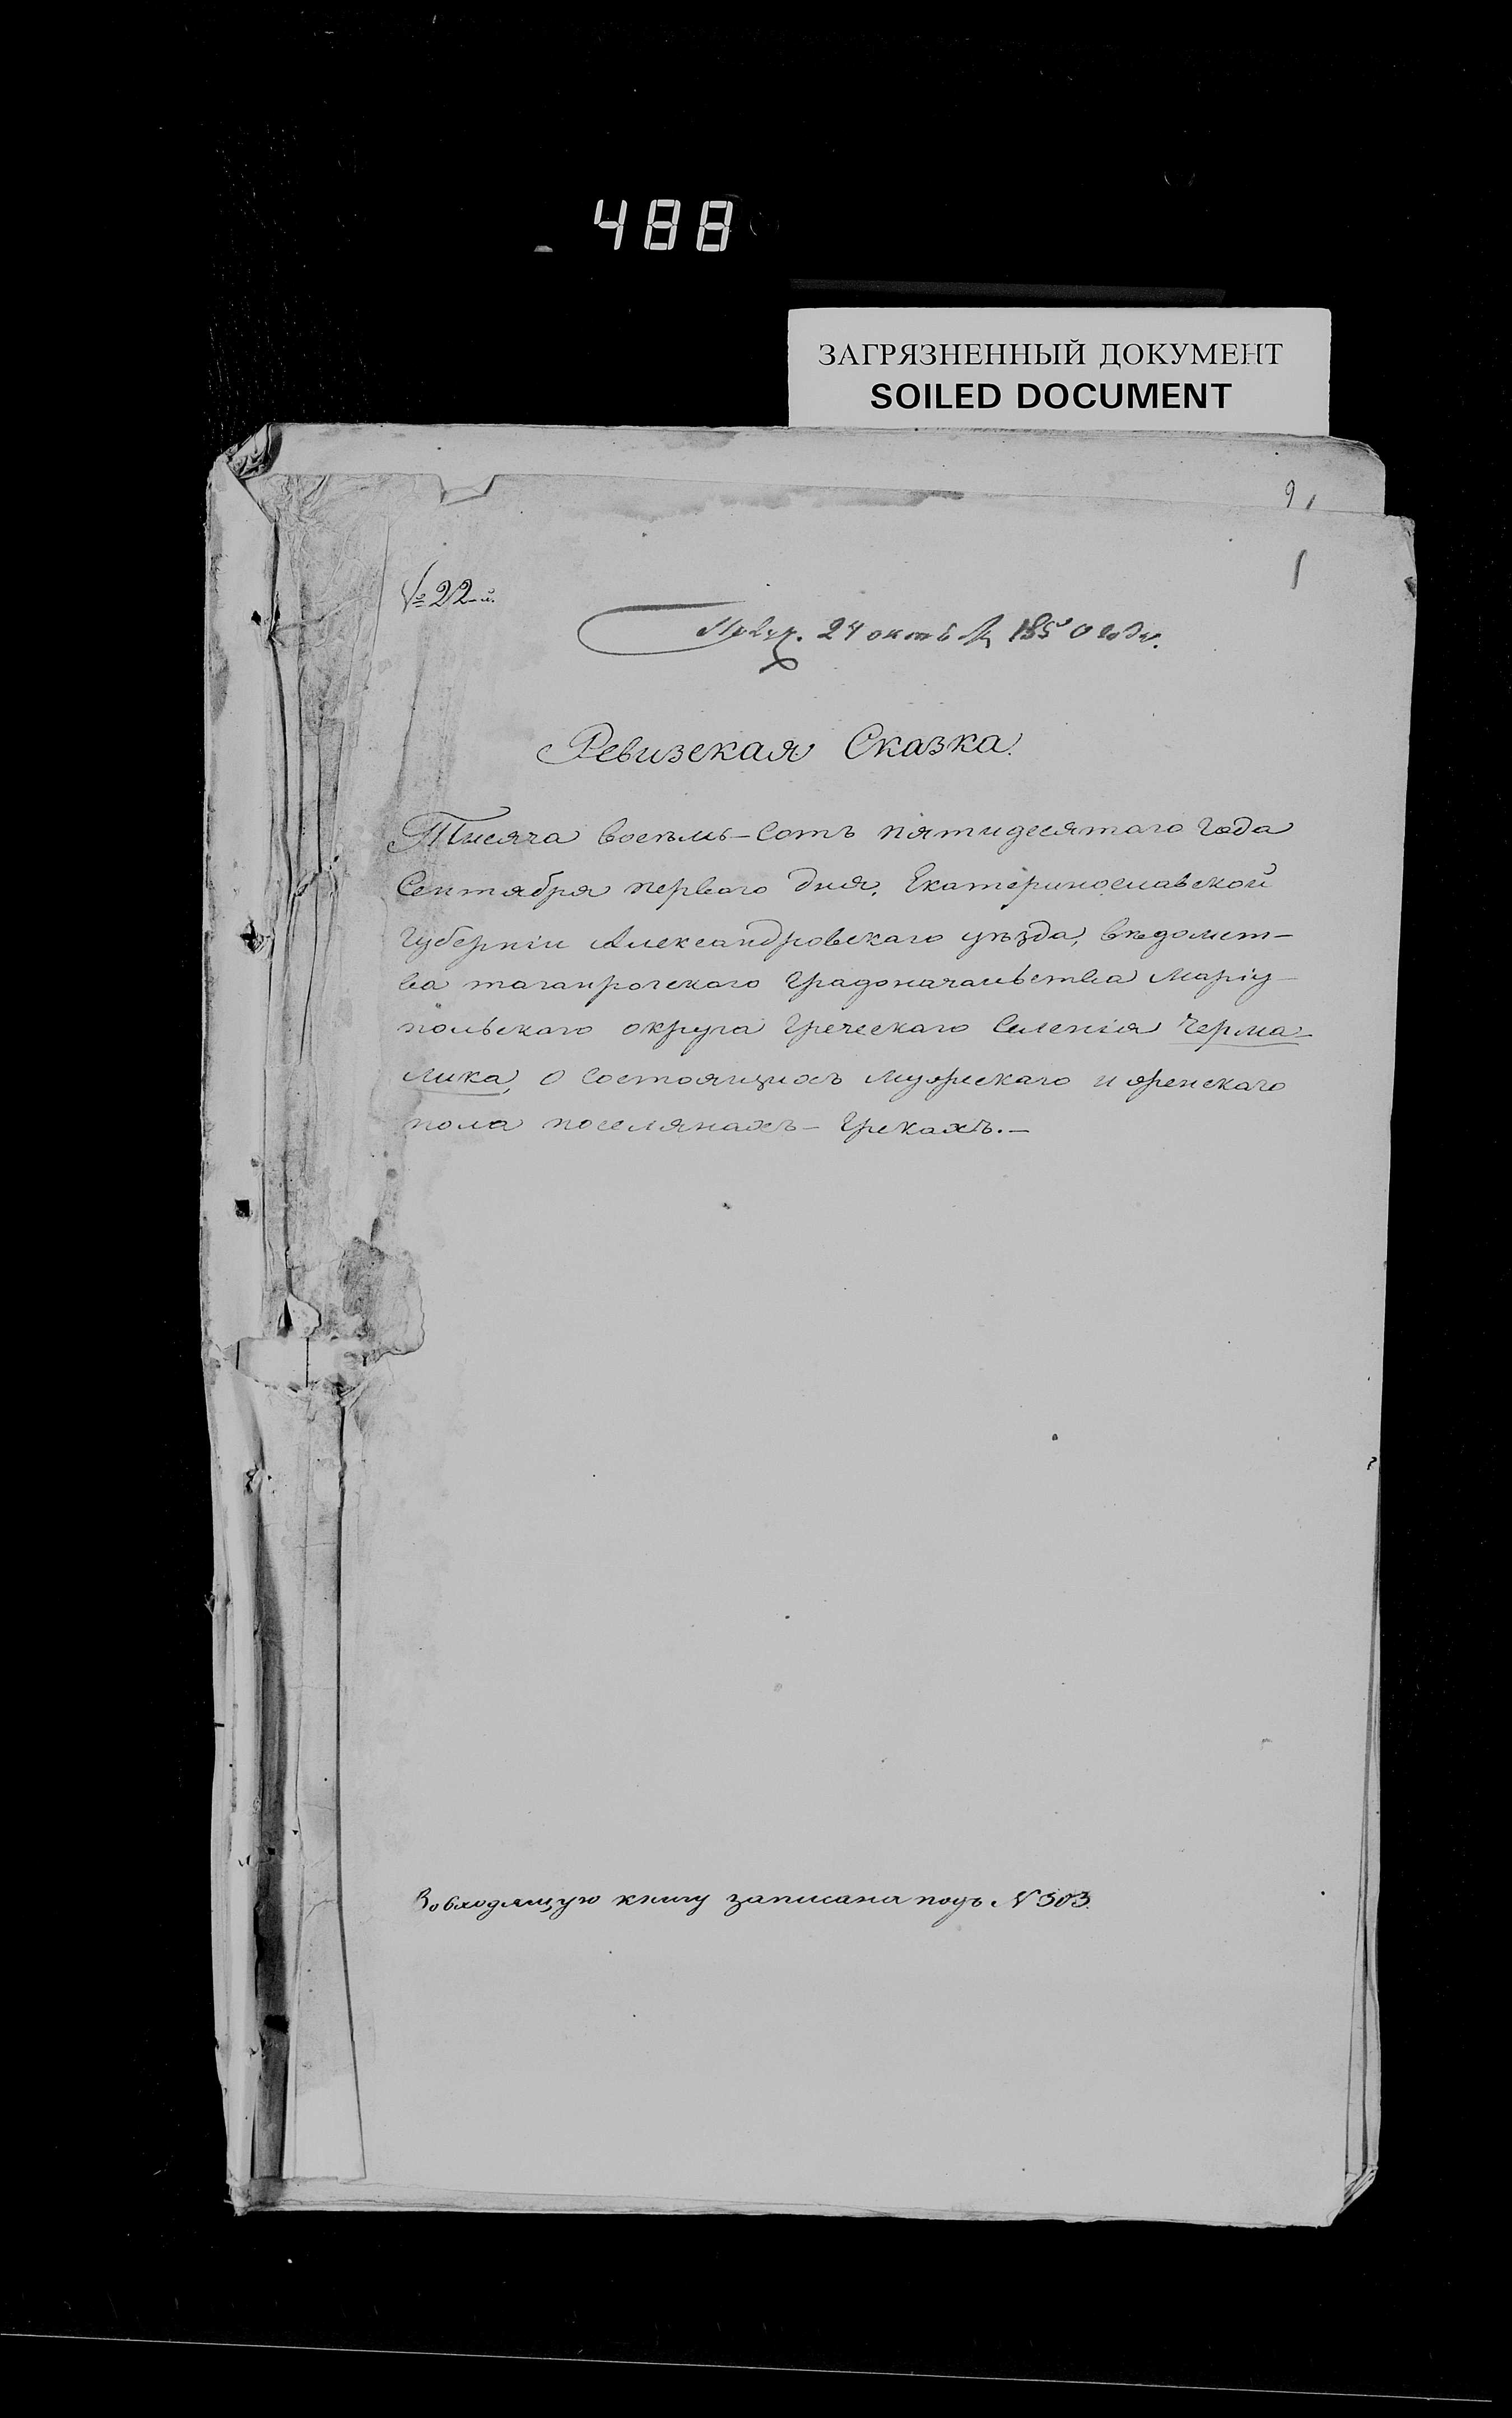 488
ЗАГРЯЗНЕННЫЙ ДОКУМЕНТ
SOILED DOCUMENT
1
№ 22-й.
24 октября 1850 года.
Ревизская Сказка.
Тысяча восемь-сотъ пятидесятаго года
Сентября перваго дня, Екатеринославской
Губерніи Александровскаго уѣзда, вѣдомст-
ва таганрогскаго Градоначальства Маріу-
польскаго округа Греческаго Селенія Черма-
лика, о состоящихъ мужескаго и женскаго
пола поселянахъ-Грекахъ.—
Во входящую книгу записана подъ N 303.